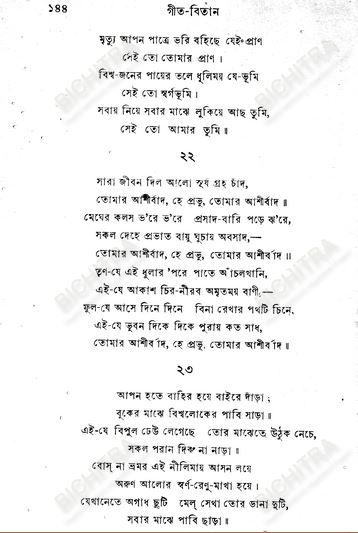 ১৪৪ গীত-বিতান
মৃত্যু আপন পাত্রে ভরি বহিছে যেই প্রাণ
সেই তো তোমার প্রাণ।
বিশ্ব-জনের পায়ের তলে ধূলিময় যে-ভূমি
সেই তো স্বর্গভূমি।
সবায় নিয়ে সবার মাঝে লুকিয়ে আছ তুমি,
সেই তো আমার তুমি॥
২২
সারা জীবন দিল আলো সূর্য গ্রহ চাঁদ,
তোমার আশীর্বাদ, হে প্রভু, তোমার আশীর্বাদ॥
মেঘের কলস ভ'রে ভ'রে প্রসাদ-বারি পড়ে ঝ'রে,
সকল দেহে প্রভাত বায়ু ঘুচায় অবসাদ,—
তোমার আশীর্বাদ, হে প্রভু, তোমার আশীর্বাদ॥
তৃণ-যে এই ধুলার 'পরে পাতে আঁচলখানি,
এই-যে আকাশ চির-নীরব অমৃতময় বাণী,
ফুল-যে আসে দিনে দিনে বিনা রেখার পথটি চিনে,
এই-যে ভুবন দিকে দিকে পুরায় কত সাধ,
তোমার আশীর্বাদ, হে প্রভু, তোমার আশীর্বাদ॥
২৩
আপন হতে বাহির হয়ে বাইরে দাঁড়া;
বুকের মাঝে বিশ্বলোকের পাবি সাড়া॥
এই-যে বিপুল ঢেউ লেগেছে তোর মাঝেতে উঠুক নেচে,
সকল পরান দিক্ না নাড়া॥
বোস্ না ভ্রমর এই নীলিমায় আসন লয়ে
অরুণ আলোর স্বর্ণ-রেণু-মাখা হয়ে।
যেখানেতে অগাধ ছুটি মেল্ সেথা তোর ডানা দুটি,
সবার মাঝে পাবি ছাড়া॥
BICHITRA